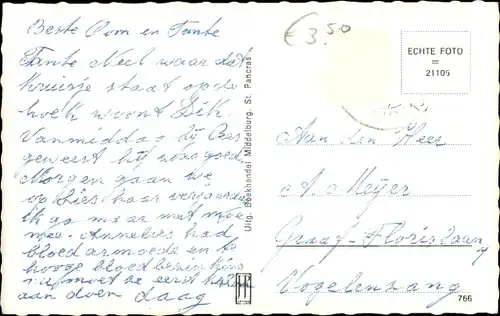 Beste Oom en Tante
Tante Neel waar dat
kruisje staat op de
hoek woont Dik
Vanmiddag bij Bas
geweest hij was goed.
Morgen gaan we
op Lies haar verjaardag
Ik ga maar met moe
mee. Annelies had
bloedarmoede en te
hooge bloedbezinking
moet ze eerst
aan doen daag
Uitg. Boekhandel Middelburg, St. Pancras
€ 3,50
ECHTE FOTO
=
21105
Aan den Heer
A. Meyer
Graaf-Florislaan
Vogelenzang
766